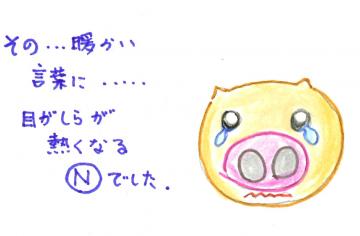 その…暖かい
言葉に.....
目がしらが
熱くなる
Ⓝでした.